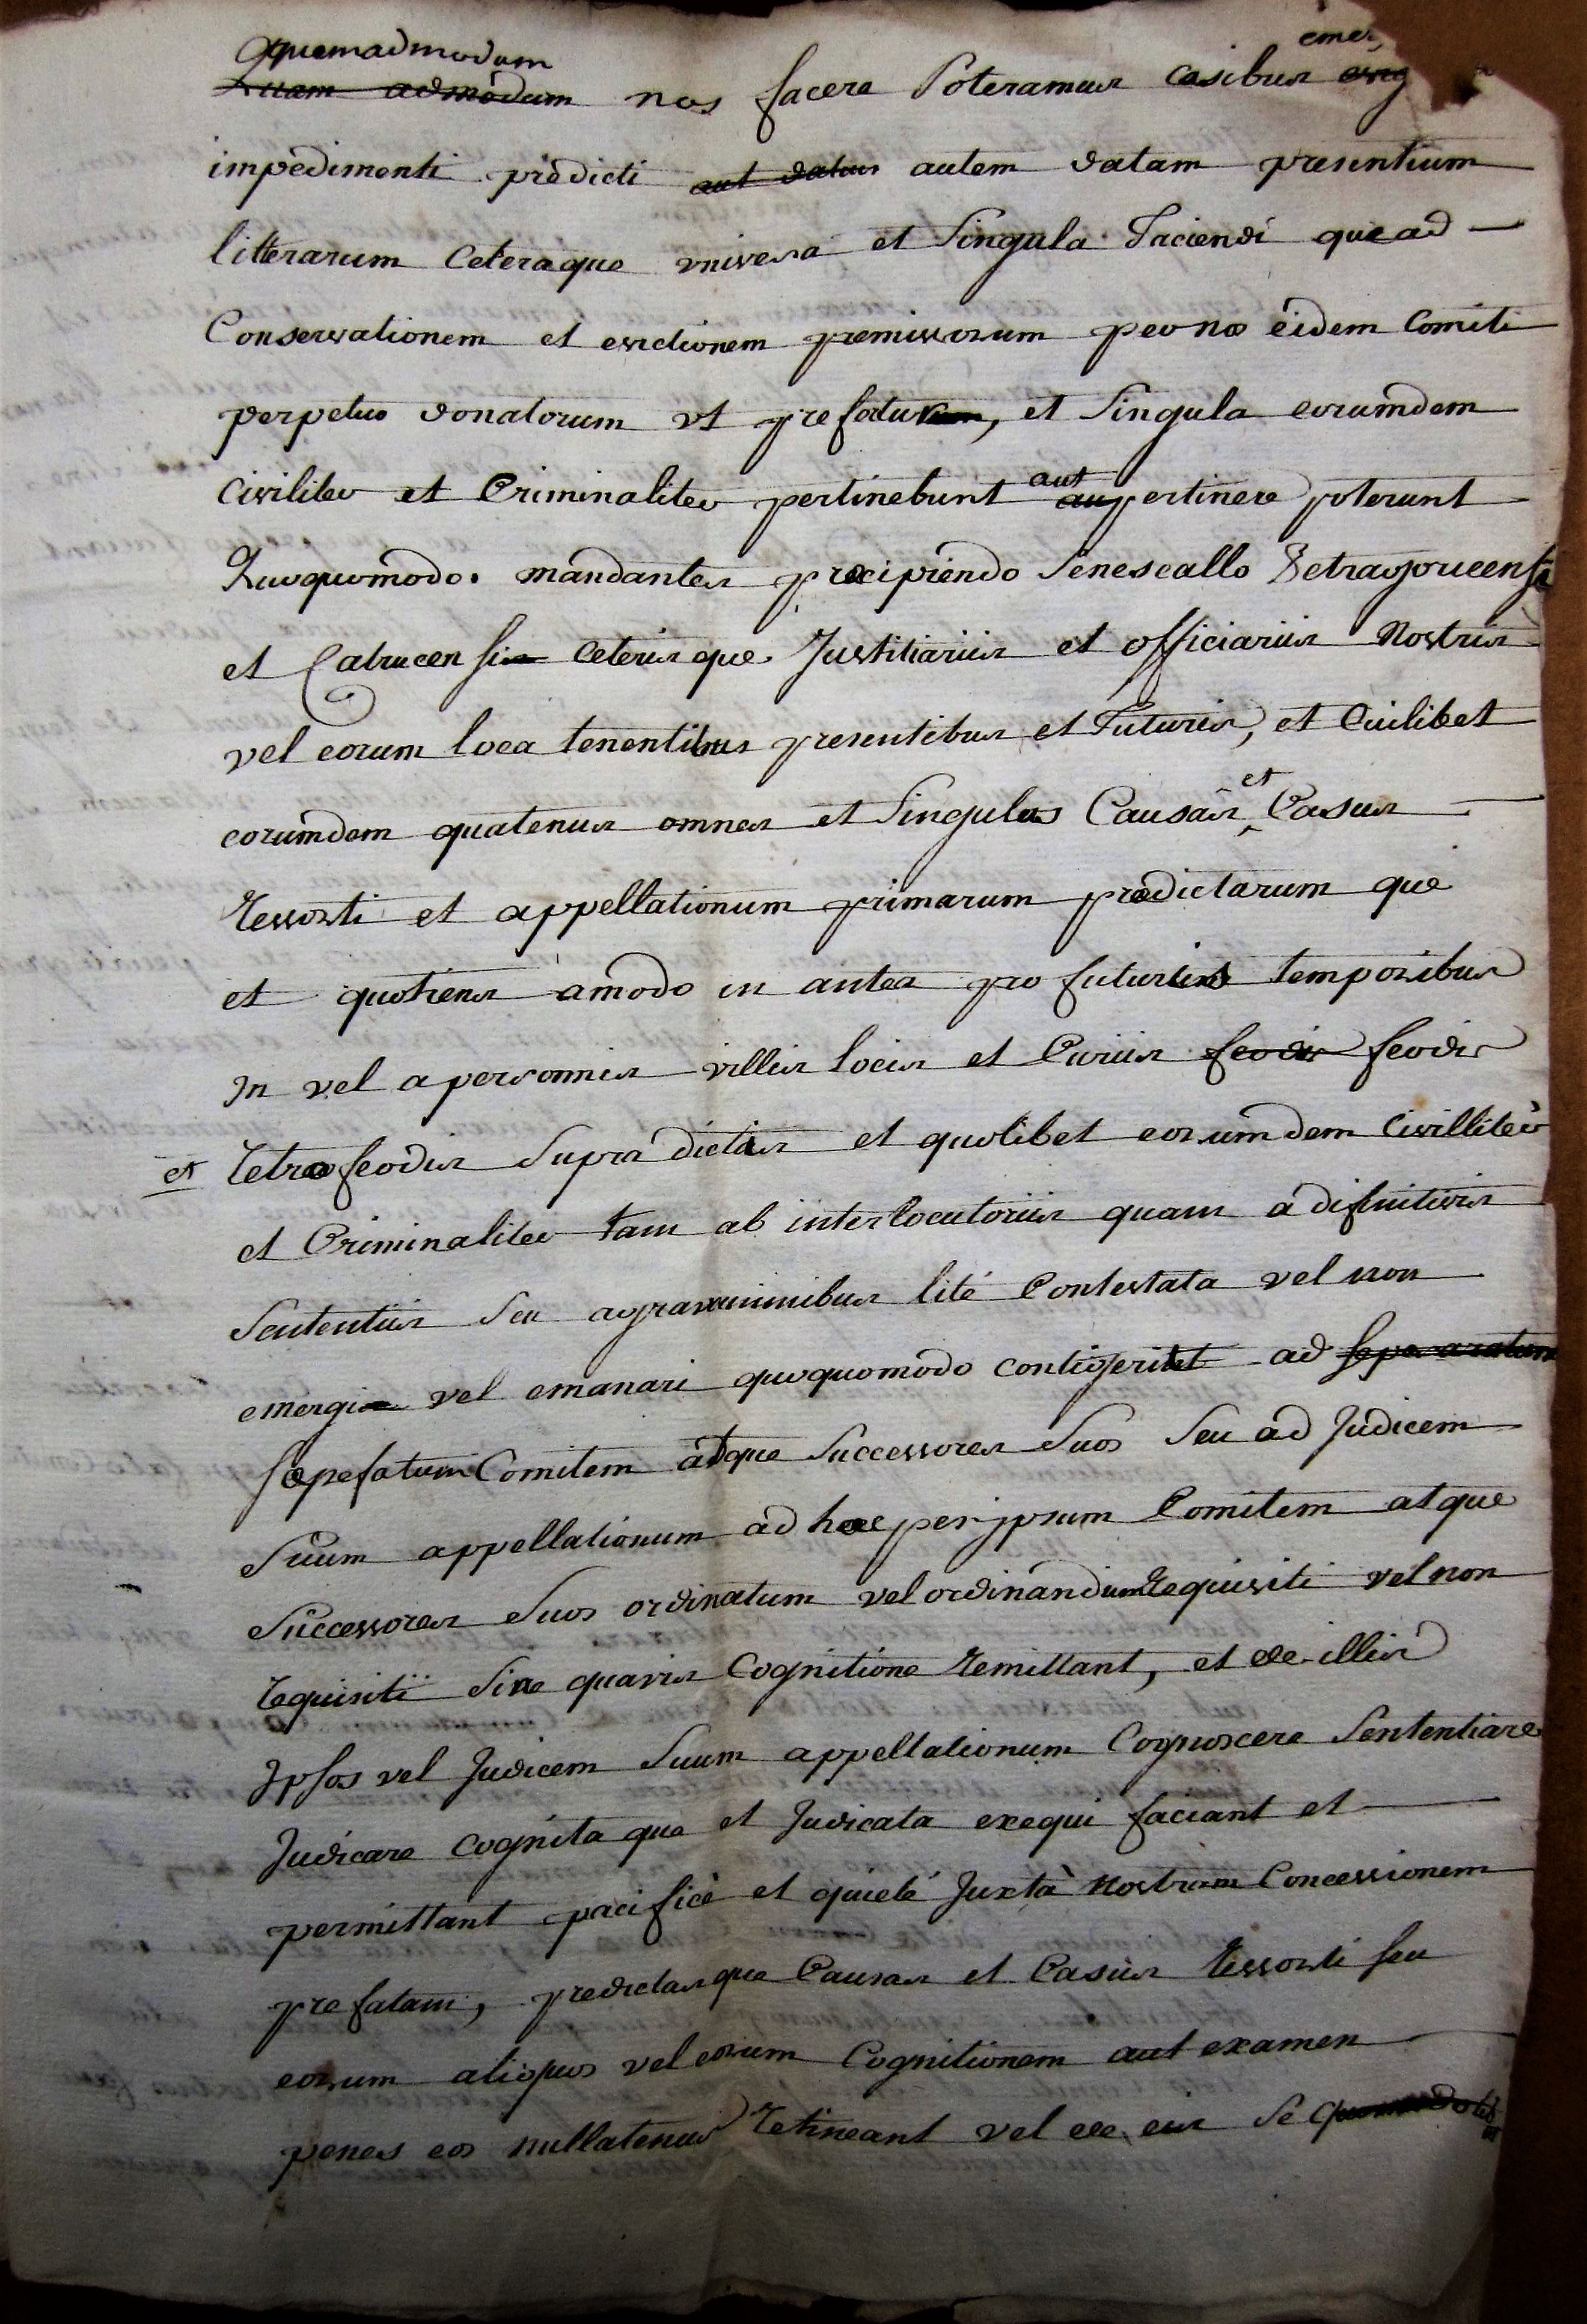 quemadmodum
Quam admodum nos facere Poteramus casibus
impedimenti predicti aut datus autem datam presentium
litterarum Ceteraque universa et Singula Faciendi que ad
Conservationem et evictionem premissorum per nos eidem Comiti
perpetuo donatorum ut prefatur, et Singula eorumdem
Civiliter et Criminaliter pertinebunt aut pertinere poterunt
Quoquomodo. mandantes precipiendo Senescallo Petragoricensi
et Catrucensi Ceterisque Justitiariis et officiariis Nostris
vel eorum loca tenentibus presentibus et Futuris, et Cuilibet
eorumdem quatenus omnes et Singulas Causas et Casus
Ressorti et appellationum primarum predictarum que
et quotiens amodo in antea pro futuris temporibus
In vel a personnis villis locis et Curiis feodis feodis
et Retrofeodis Supra dictis et quolibet eorumdem Civilliter
et Criminaliter tam ab interlocutoriis quam a difinitivis
Sententiis Seu agravaminibus lité Contestata vel non
emergi vel emanari quoquomodo contigerit ad seperaratum
Sæpefatum Comitem atque Successores Suos Seu ad Judicem
Suum appellationum ad hæc per ipsum Comitem atque
Successores Suos ordinatum vel ordinandum Requisiti vel non
Requisiti Sine quavis Cognitione Remittant, et de illis
Ipsos vel Judicem Suum appellationum Cognoscere Sententiare
Judicare Cognita que et Judicata exequi faciant et
permittant pacificè et quieté Juxtà Nostram Concessionem
prefatam, predictasque Causas et Casus Ressorti seu
eorum aliquos vel eorum Cognitionem aut examen
penes eos nullatenus Retineant vel de eis Se